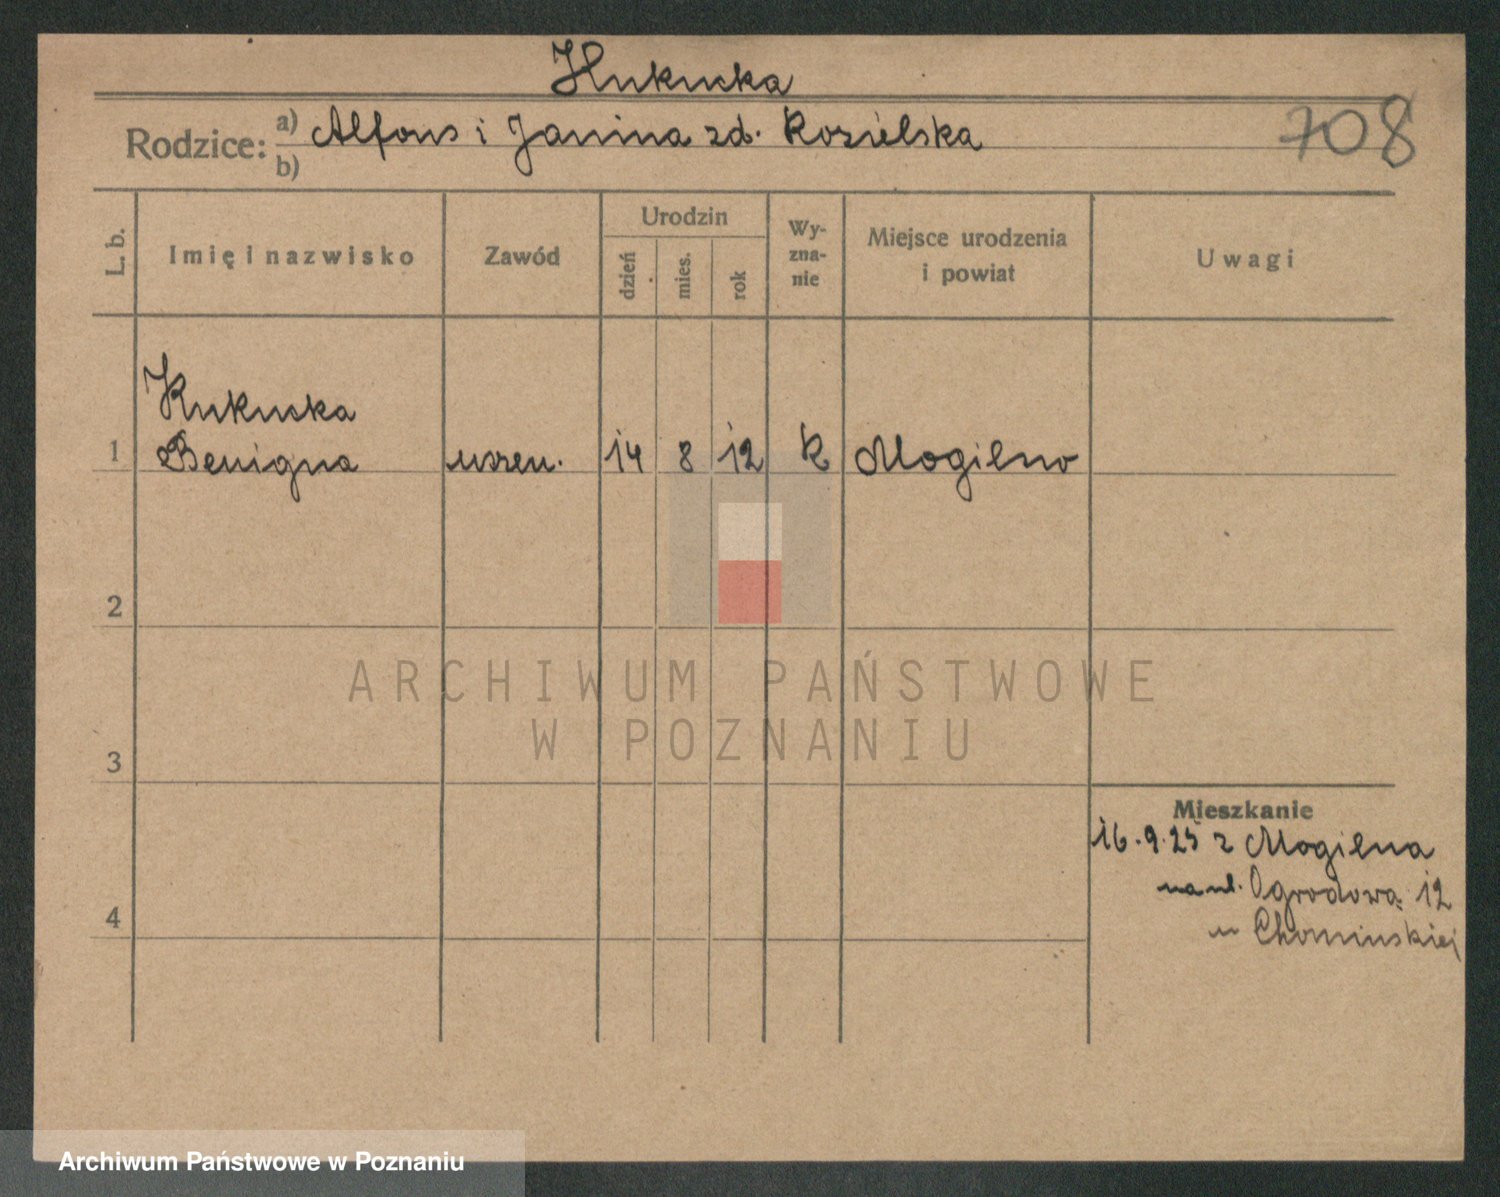 Kukucka
Rodzice: a) Alfons i Janina zd. Kozielska
708
b)
L. b.
Imię i nazwisko
Zawód
Urodzin
dzień
mies.
rok
Wy-
zna-
nie
Miejsce urodzenia
i powiat
Uwagi
Kukucka
1 Benigna uczen. 14 8 12 k Mogilno
2
ARCHIWUM PAŃSTWOWE
W POZNANIU
3
Mieszkanie
16.9.25 z Mogilna
na ul. Ogrodową 12
u Chomińskiej
4
Archiwum Państwowe w Poznaniu